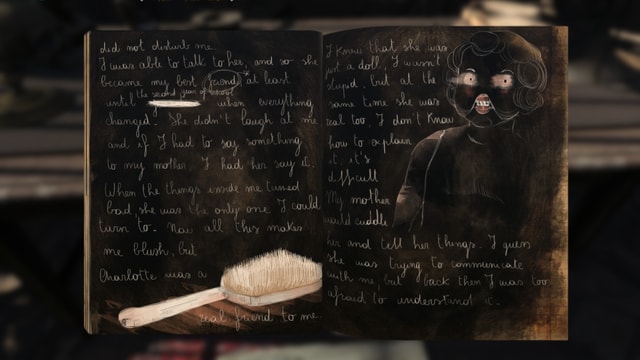 did not disturb me.
I was able to talk to her, and so she
became my best friend, at least
the second year of
until when everything
changed. She didn't laugh at me
and if I had to say something
to my mother I had her say it.
When the things inside me turned
bad, she was the only one I could
turn to. Now all this makes
me blush, but
Charlotte was a
real friend to me...
I know that she was
just a doll, I wasn't
stupid, but at the
same time she was
real too. I don't know
how to explain
it, it's
difficult.
My mother
would cuddle
her and tell her things. I guess
she was trying to communicate
with me, but back then I was too
afraid to understand it.